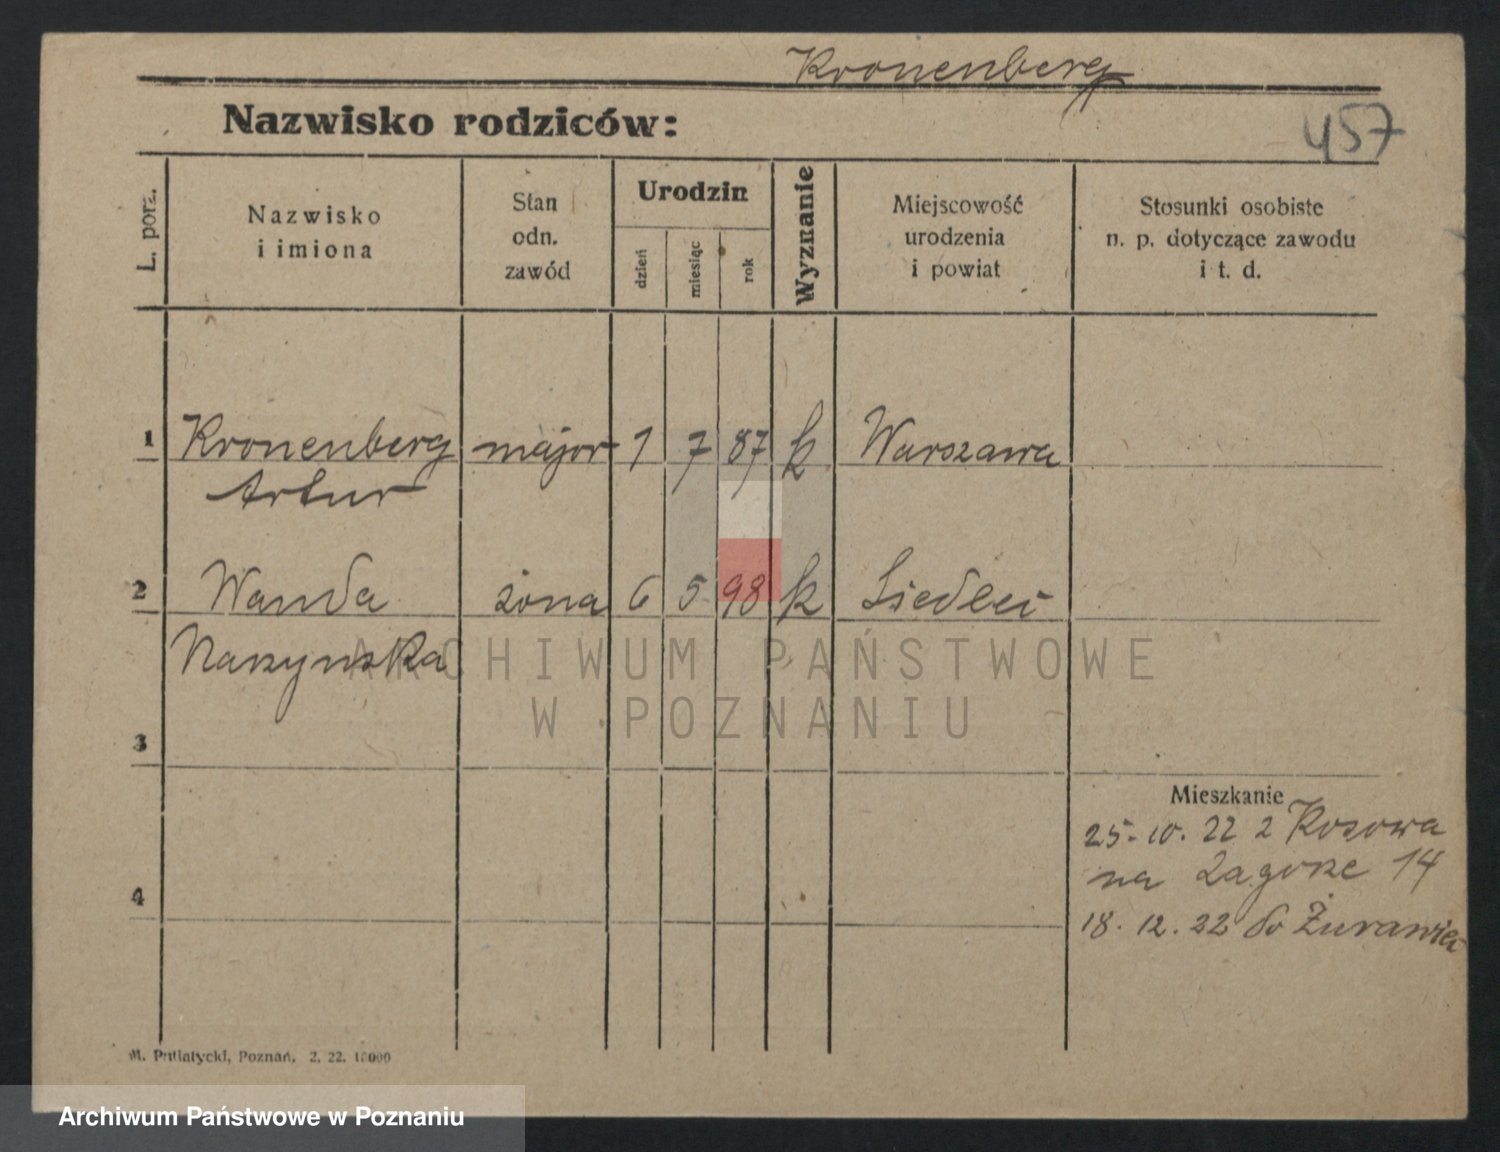 Kronenberg
Nazwisko rodziców:
457
L. porz.
Nazwisko
i imiona
Stan
odn.
zawód
Urodzin
dzień
miesiąc
rok
Wyznanie
Miejscowość
urodzenia
i powiat
Stosunki osobiste
n. p. dotyczące zawodu
i t. d.
1 Kronenberg major 1 7 87 k Warszawa
Artur
2 Wanda żona 6 5 98 k Siedlec
ARCHIWUM PAŃSTWOWE
W POZNANIU
3
Mieszkanie
25-10. 22 z Kosowa
na Zagorze 14
4
18. 12. 22 do Żurawiec
M. Putiatycki, Poznań, 2. 22. 10000
Archiwum Państwowe w Poznaniu